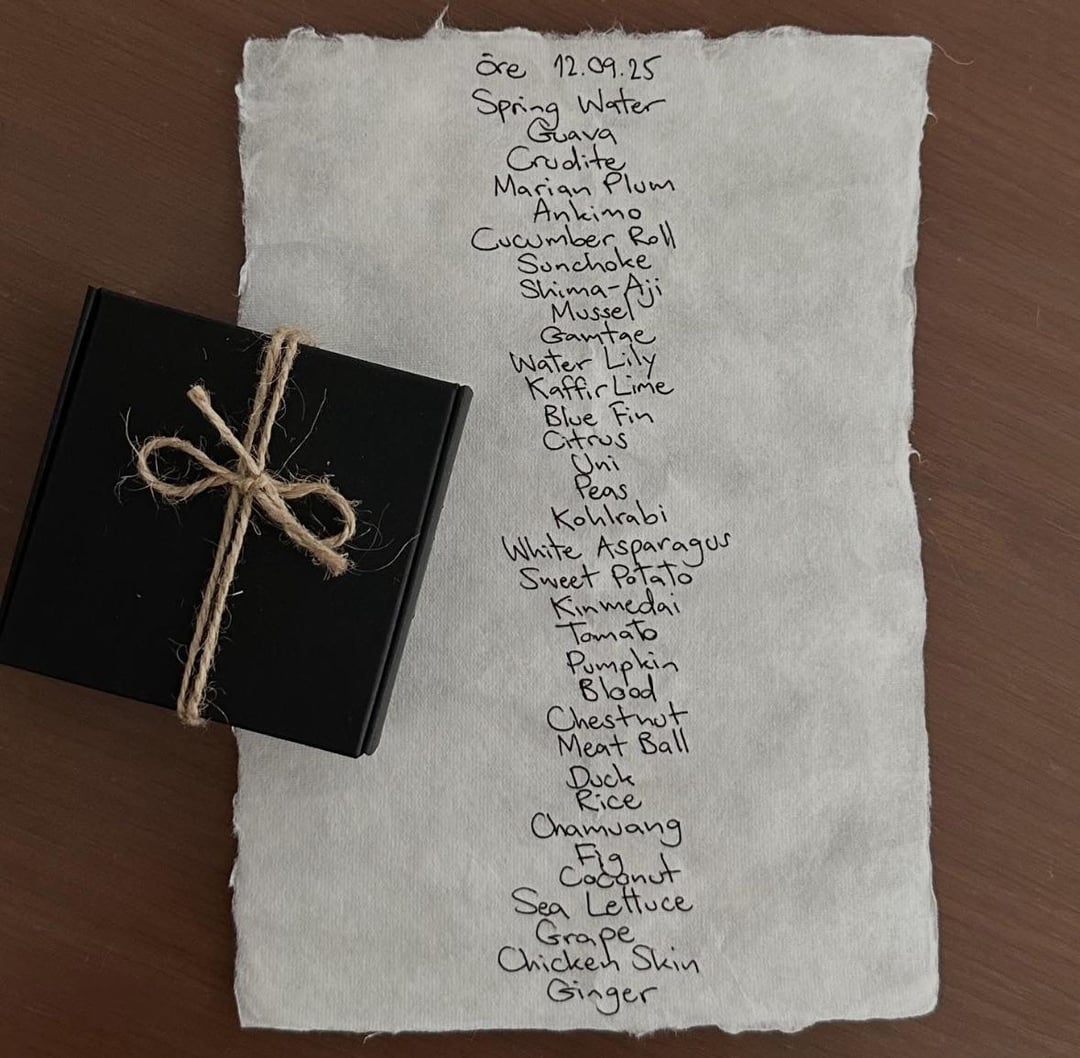 Öre 12.09.25
Spring Water
Guava
Crudite
Marian Plum
Ankimo
Cucumber Roll
Sunchoke
Shima-Aji
Mussel
Gamtae
Water Lily
Kaffir Lime
Blue Fin
Citrus
Uni
Peas
Kohlrabi
White Asparagus
Sweet Potato
Kinmedai
Tomato
Pumpkin
Blood
Chestnut
Meat Ball
Duck
Rice
Chamuang
Fig
Coconut
Sea Lettuce
Grape
Chicken Skin
Ginger